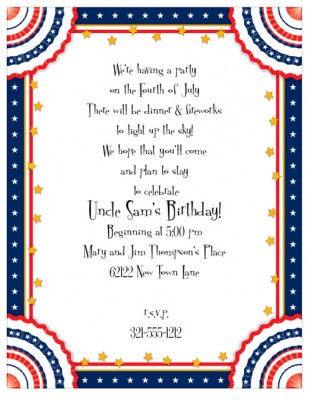 We're having a party
on the Fourth of July
There will be dinner & fireworks
to light up the sky!
We hope that you'll come
and plan to stay
to celebrate
Uncle Sam's Birthday!
Beginning at 5:00 pm
Mary and Jim Thompson's Place
62122 New Town Lane
r.s.v.p.
321-555-1212